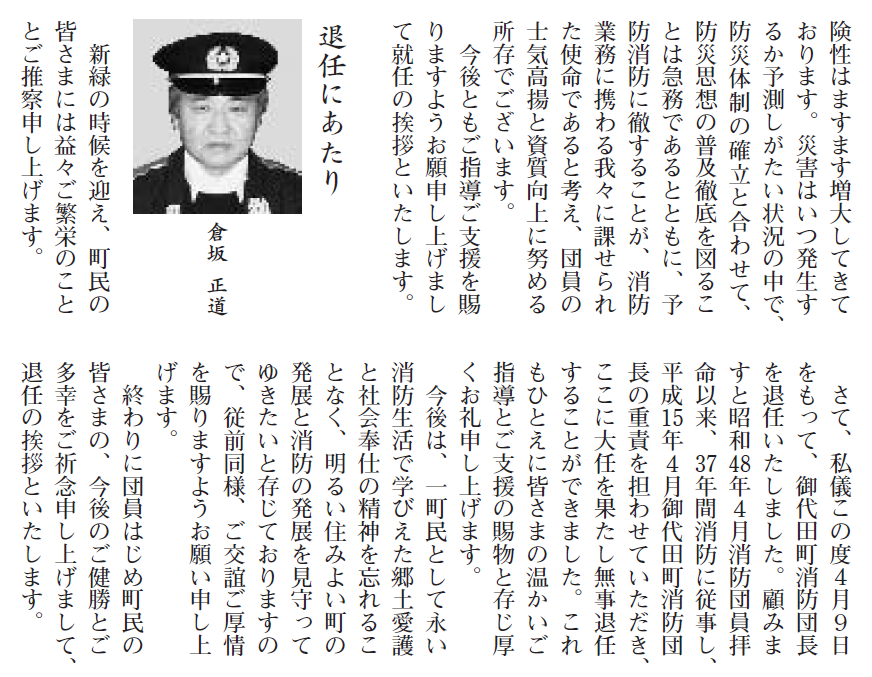 険性はますます増大してきて
おります。災害はいつ発生す
るか予測しがたい状況の中で、
防災体制の確立と合わせて、
防災思想の普及徹底を図るこ
とは急務であるとともに、予
防消防に徹することが、消防
業務に携わる我々に課せられ
た使命であると考え、団員の
士気高揚と資質向上に努める
所存でございます。
今後ともご指導ご支援を賜
りますようお願申し上げまし
て就任の挨拶といたします。
退任にあたり
倉坂 正道
新緑の時候を迎え、町民の
皆さまには益々ご繁栄のこと
とご推察申し上げます。
さて、私儀この度4月9日
をもって、御代田町消防団長
を退任いたしました。顧みま
すと昭和48年4月消防団員拝
命以来、37年間消防に従事し、
平成15年4月御代田町消防団
長の重責を担わせていただき、
ここに大任を果たし無事退任
することができました。これ
もひとえに皆さまの温かいご
指導とご支援の賜物と存じ厚
くお礼申し上げます。
今後は、一町民として永い
消防生活で学びえた郷土愛護
と社会奉仕の精神を忘れるこ
となく、明るい住みよい町の
発展と消防の発展を見守って
ゆきたいと存じておりますの
で、従前同様、ご交誼ご厚情
を賜りますようお願い申し上
げます。
終わりに団員はじめ町民の
皆さまの、今後のご健勝とご
多幸をご祈念申し上げまして、
退任の挨拶といたします。